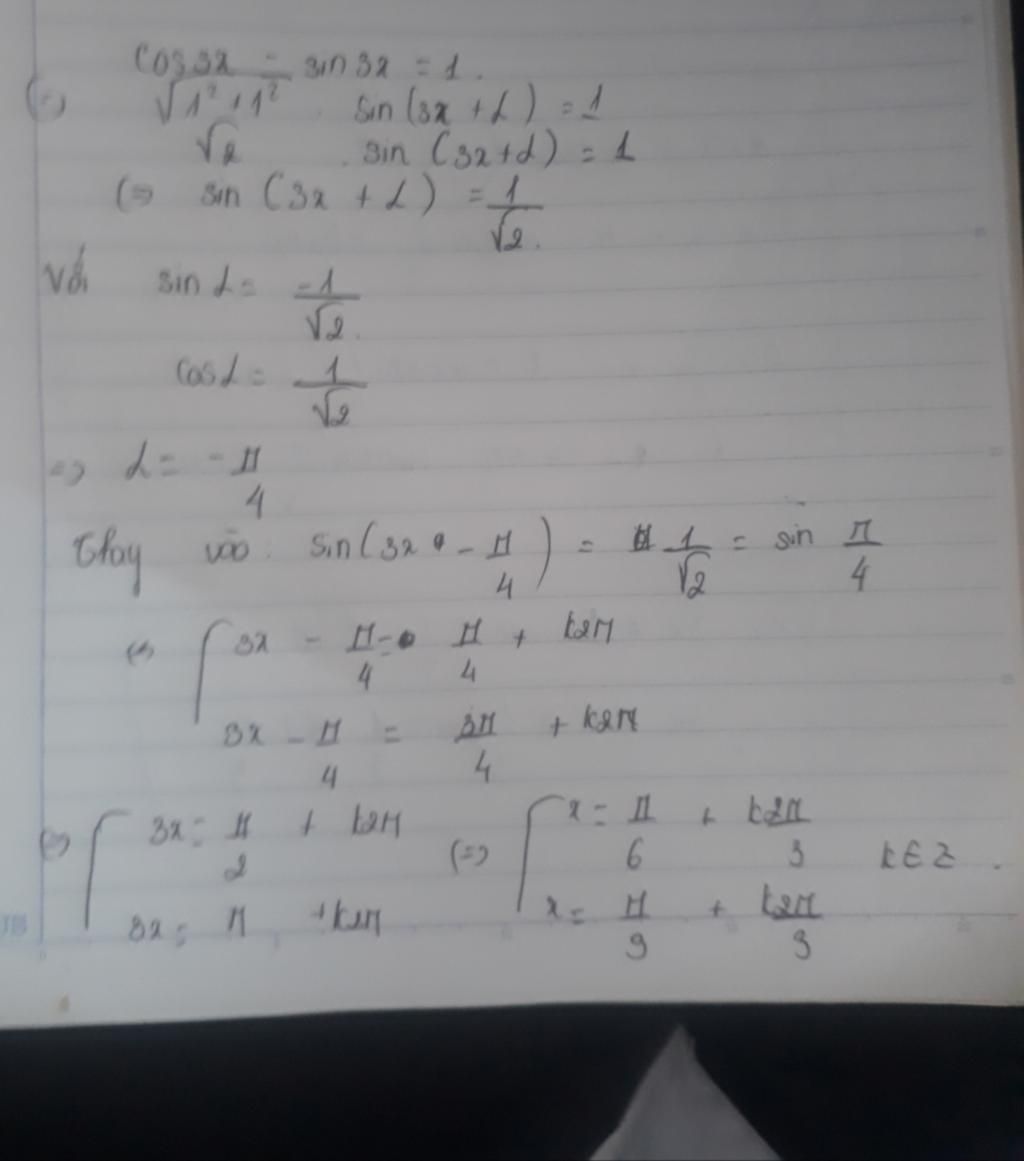 cos3x - sin3x = 1.
(=) √1²+1² . sin(3x + α) = 1
√2 . sin (3x+α) = 1
(=) sin (3x + α) = 1/√2.
Với sin α = -1/√2.
cos α = 1/√2
=> α = -π/4
Thay vào: sin(3x - π/4) = 1/√2 = sin π/4
(=) [ 3x - π/4 = π/4 + k2π
3x - π/4 = 3π/4 + k2π
(=) [ 3x = π/2 + k2π (=) [ x = π/6 + k2π/3 k∈Z.
3x = π + k2π x = π/3 + k2π/3